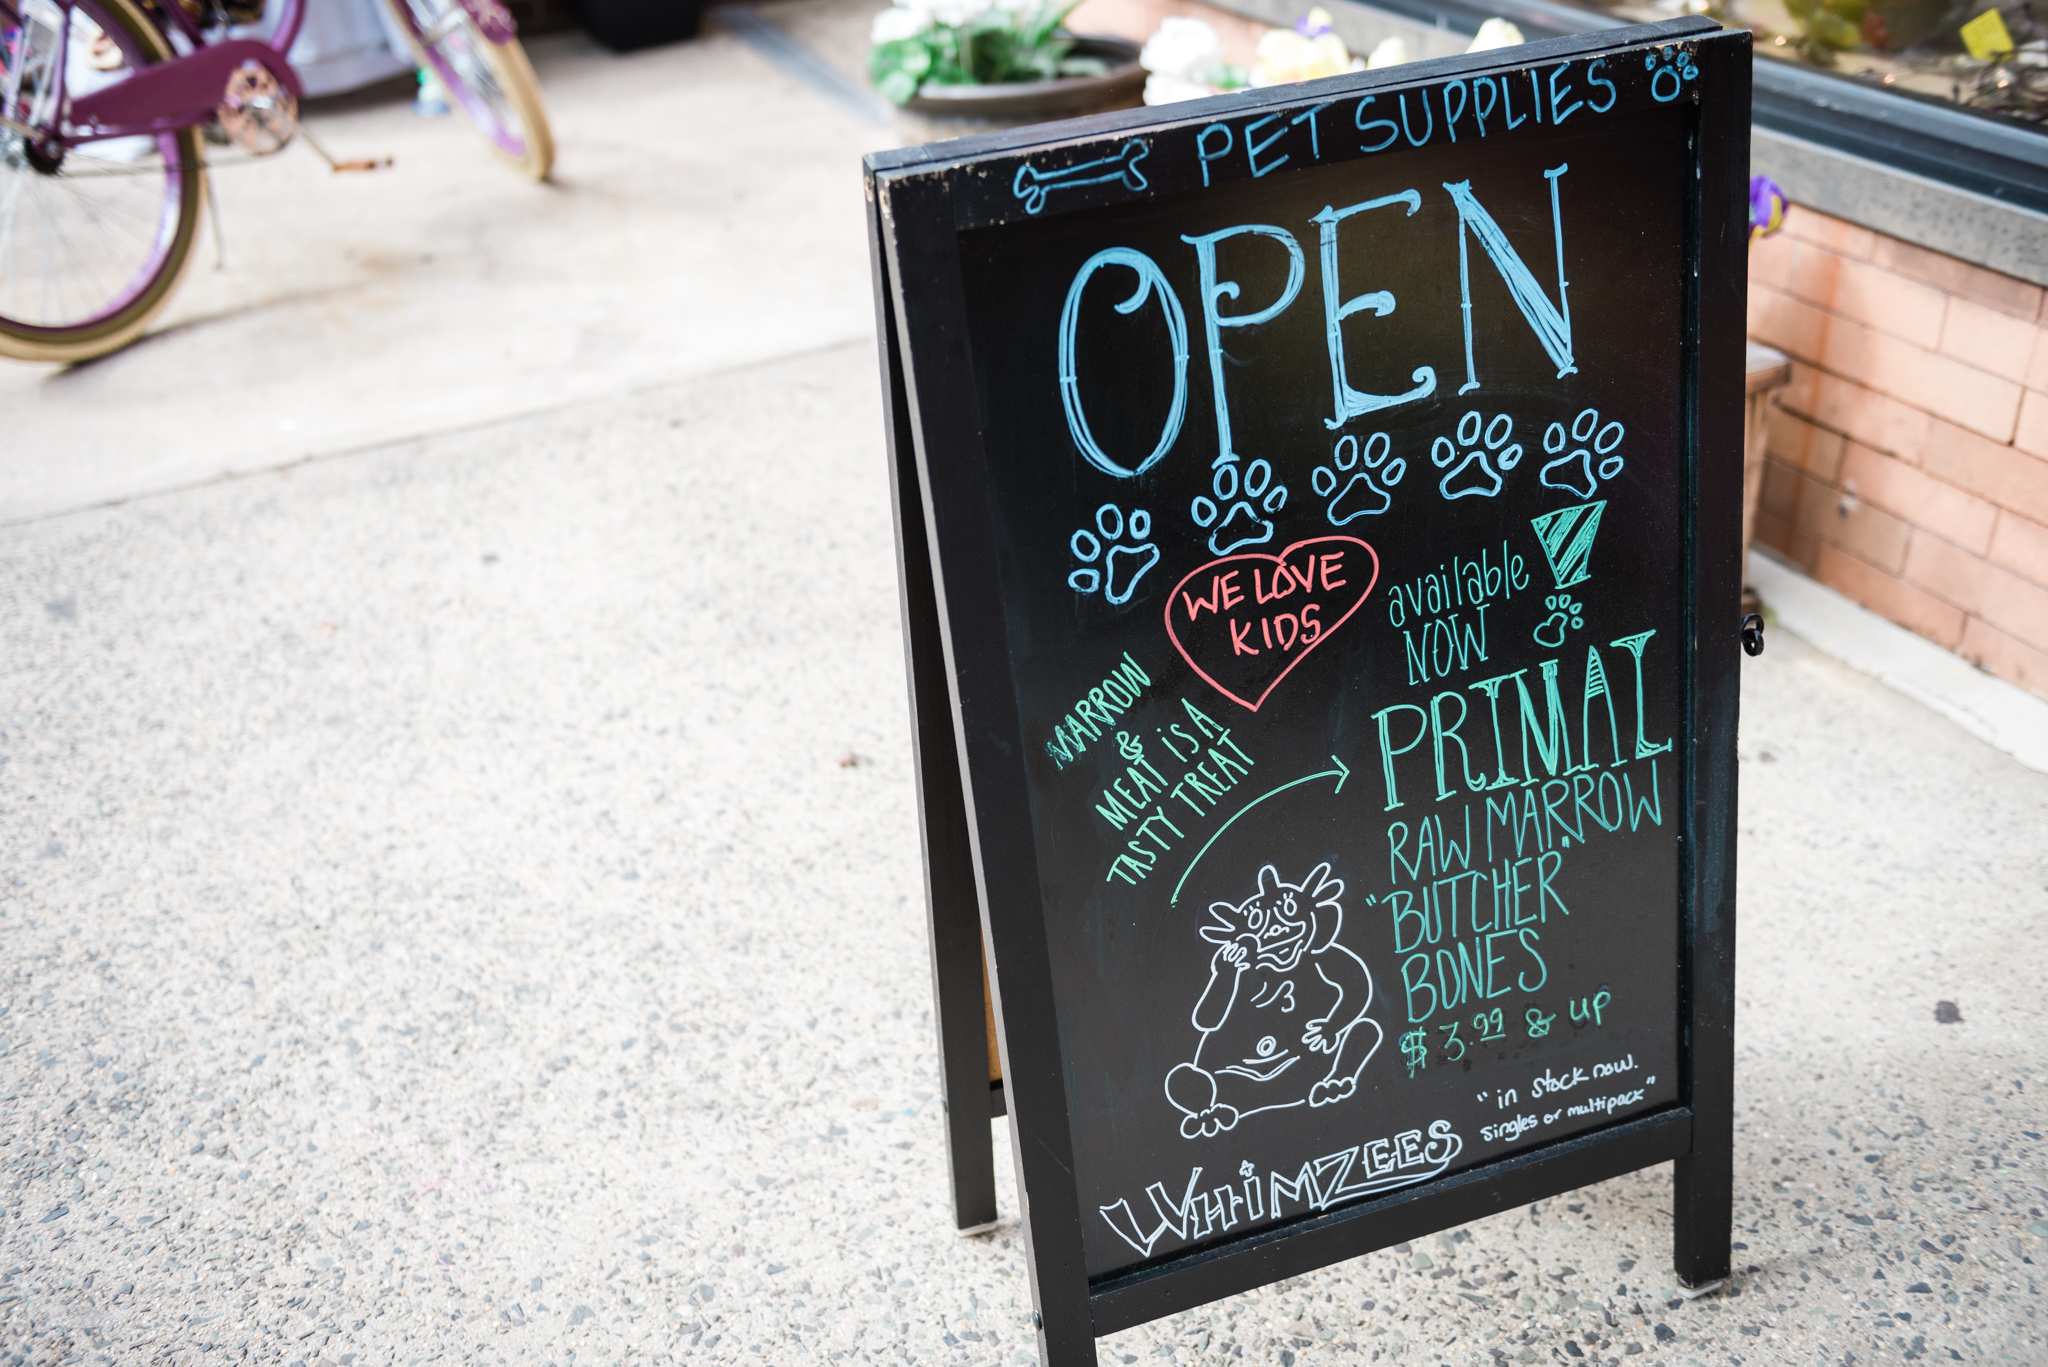 PET SUPPLIES
OPEN
WE LOVE
KIDS
available
NOW
!
MARROW
&
MEAT iS A
TASTY TREAT
PRIMAL
RAW MARROW
"BUTCHER"
BONES
$3.99 & up
"in stock now.
singles or multipack"
WHiMZEES